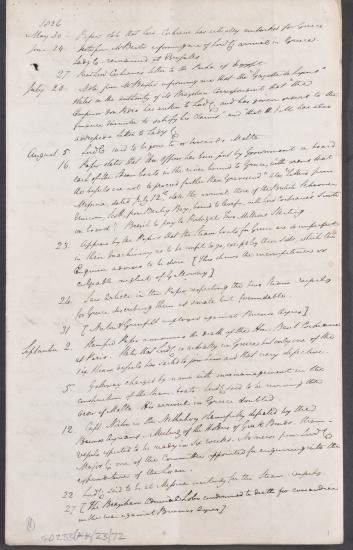 1826
May 30 - Papers state that Lord Cochrane has actually embarked for Greece
June 14. Note from Mr Baxter informing me of Lord C's arrival in Greece.
Lady C. remained at
27 Read Lord Cochrane's letter to the Pasha of Egypt
July 20. Note from Mr Baxter informing me that the Gazette de Lyons
states on the authority of its Brazilian Correspondent that the
Emperor Don Pedro has written to Lord C. and has given orders to the
finance minister to satisfy his claims and that H.M. has also
addressed a letter to Lady C.
August 5. Lord C. said to be gone to or towards Malta.
16. Paper states that an officer has been put by Government on board
each of the Steam boats in the river bound to Greece, with orders that
the vessels are not to proceed further than Gravesend. Also letters from
Messina, dated July 12th state the arrival there of the British Schooner
Unicorn, from Bantry Bay, bound to Corfu, with Lord Cochrane
on board. Brazil to pay to Portugal Two Millions Sterling
23. Appears by the Papers that the Steam boats for Greece are so imperfect
in their machinery as to be unfit to go, except by their sails, which the
Engineer advises to be done [This shews the incompetence or
culpable neglect of Galloway]
24. Saw letter in the Papers respecting the two Steam vessels
for Greece describing them as small but formidable.
31 [ and Grenfell employed against Buenos Ayres]
September 2. Hampshire Papers announces the death of the Hon. Basil Cochrane
at Paris. States that Lord C. is actually in Greece but only one of the
six steam vessels has sailed to join him and that very defective.
5. Galloway charged by name with mismanagement in the
construction of the Steam boats. Lord C. said to be cruising the
of Malta. His arrival in Greece doubted.
12. Capt. in the shamefully defeated by the
Buenos Ayreans. Meeting of the Holders of Greek Bonds. Steam
vessels reported to be ready in six weeks. No news from Lord C.
Major C. one of the Committee appointed for enquiring into the
expenditure of the Loan.
22 Lord C. said to be at Messina waiting for the Steam vessels.
27 [The Brazilian Admiral Lobo condemned to death for cowardice
in the war against Buenos Ayres]